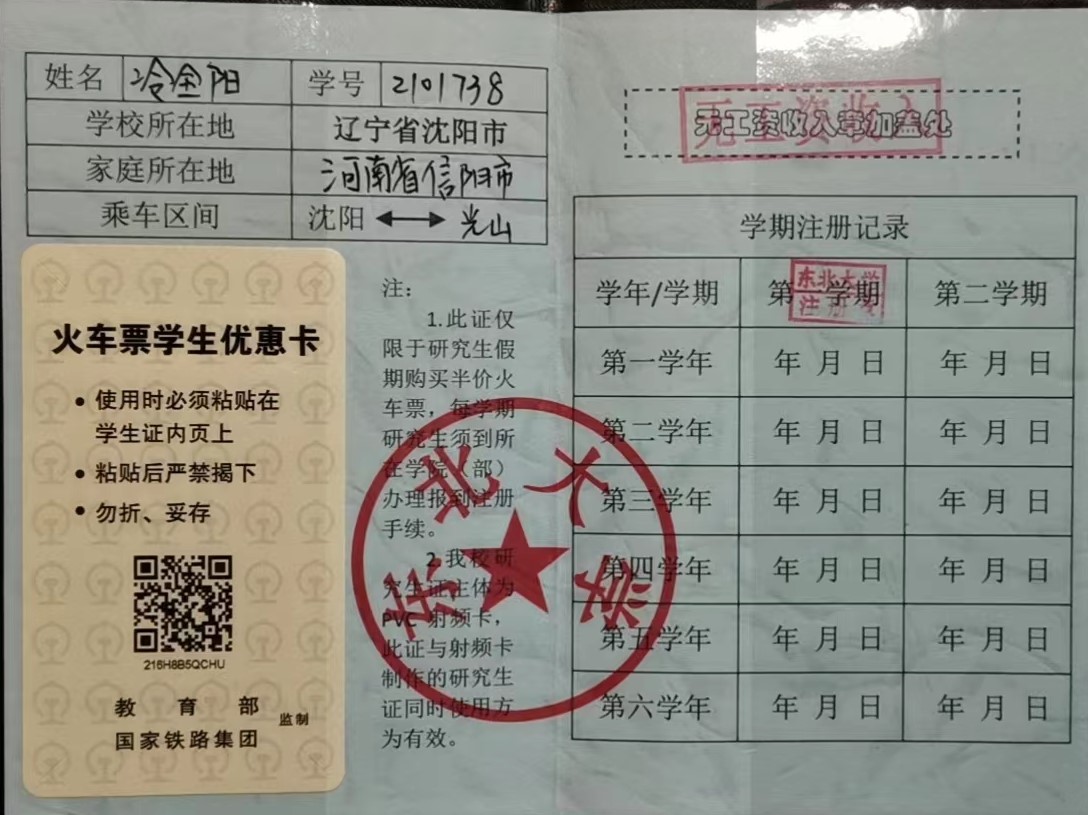 姓名 冷金阳 学号 2101738
学校所在地 辽宁省沈阳市
家庭所在地 河南省信阳市
乘车区间 沈阳 光山
火车票学生优惠卡
• 使用时必须粘贴在
学生证内页上
• 粘贴后严禁揭下
• 勿折、妥存
216H8B5QCHU
教育部
国家铁路集团
监制
注：
1.此证仅
限于研究生假
期购买半价火
车票，每学期
研究生须到所
在学院（部）
办理报到注册
手续。
2.我校研
究生证主体为
PVC 射频卡，
此证与射频卡
制作的研究生
证同时使用方
为有效。
东北大学
无工资收入章加盖处
无工资收入
学期注册记录
学年/学期 第一学期 第二学期
东北大学
注册
第一学年 年 月 日 年 月 日
第二学年 年 月 日 年 月 日
第三学年 年 月 日 年 月 日
第四学年 年 月 日 年 月 日
第五学年 年 月 日 年 月 日
第六学年 年 月 日 年 月 日